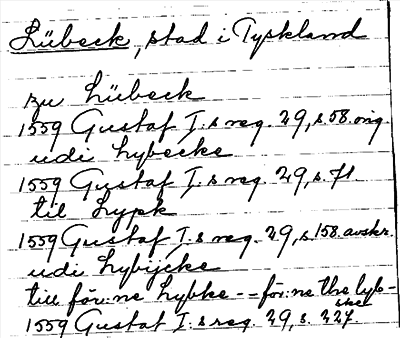 Lübeck, stad i Tyskland
zu Lübeck
1559 Gustaf I:s reg. 29, s. 58. orig
udi Lybecke
1559 Gustaf I:s reg. 29, s. 71.
til Lypk
1559 Gustaf I:s reg. 29, s. 158. avskr.
udi Lybijcke
till för:ne Lybke -- för:ne the lyb-
ske
1559 Gustaf I:s reg. 29, s. 327.